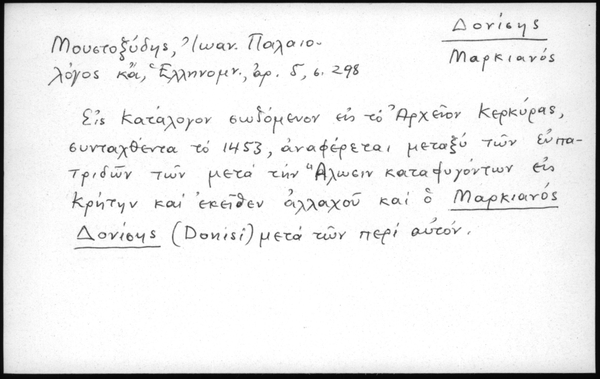 Δονίσης
Μαρκιανός
Μουστοξύδης, Ἰωάν. Παλαιο-
λόγος κἄ, Ἑλληνομν., ἀρ. 5, σ. 298
Εἰς κατάλογον σωζόμενον εἰς τὸ Ἀρχεῖον Κερκύρας,
συνταχθέντα τὸ 1453, ἀναφέρεται μεταξὺ τῶν εὐπα-
τριδῶν τῶν μετὰ τὴν Ἅλωσιν καταφυγόντων εἰς
Κρήτην καὶ ἐκεῖθεν ἀλλαχοῦ καὶ ὁ Μαρκιανός
Δονίσης (Donisi) μετὰ τῶν περὶ αὐτόν.